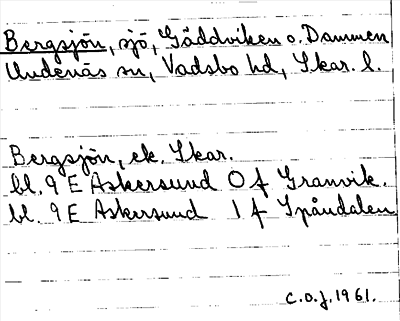 Bergsjön, sjö, Gäddviken o. Dammen
Undenäs sn, Vadsbo hd, Skar. l.
Bergsjön, ek. Skar.
bl. 9 E Askersund 0 f Granvik.
bl. 9 E Askersund 1 f Spåndalen
C.O.J. 1961.